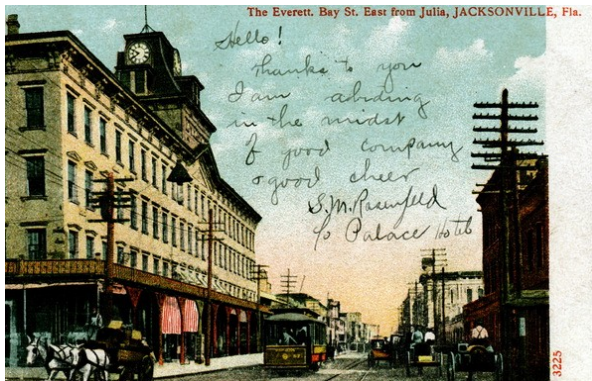 The Everett. Bay St. East from Julia, JACKSONVILLE, Fla.
Hello!
Thanks to you
I am abiding
in the midst
of good company
& good cheer
S.M. Rosenfeld
c/o Palace Hotel
3225